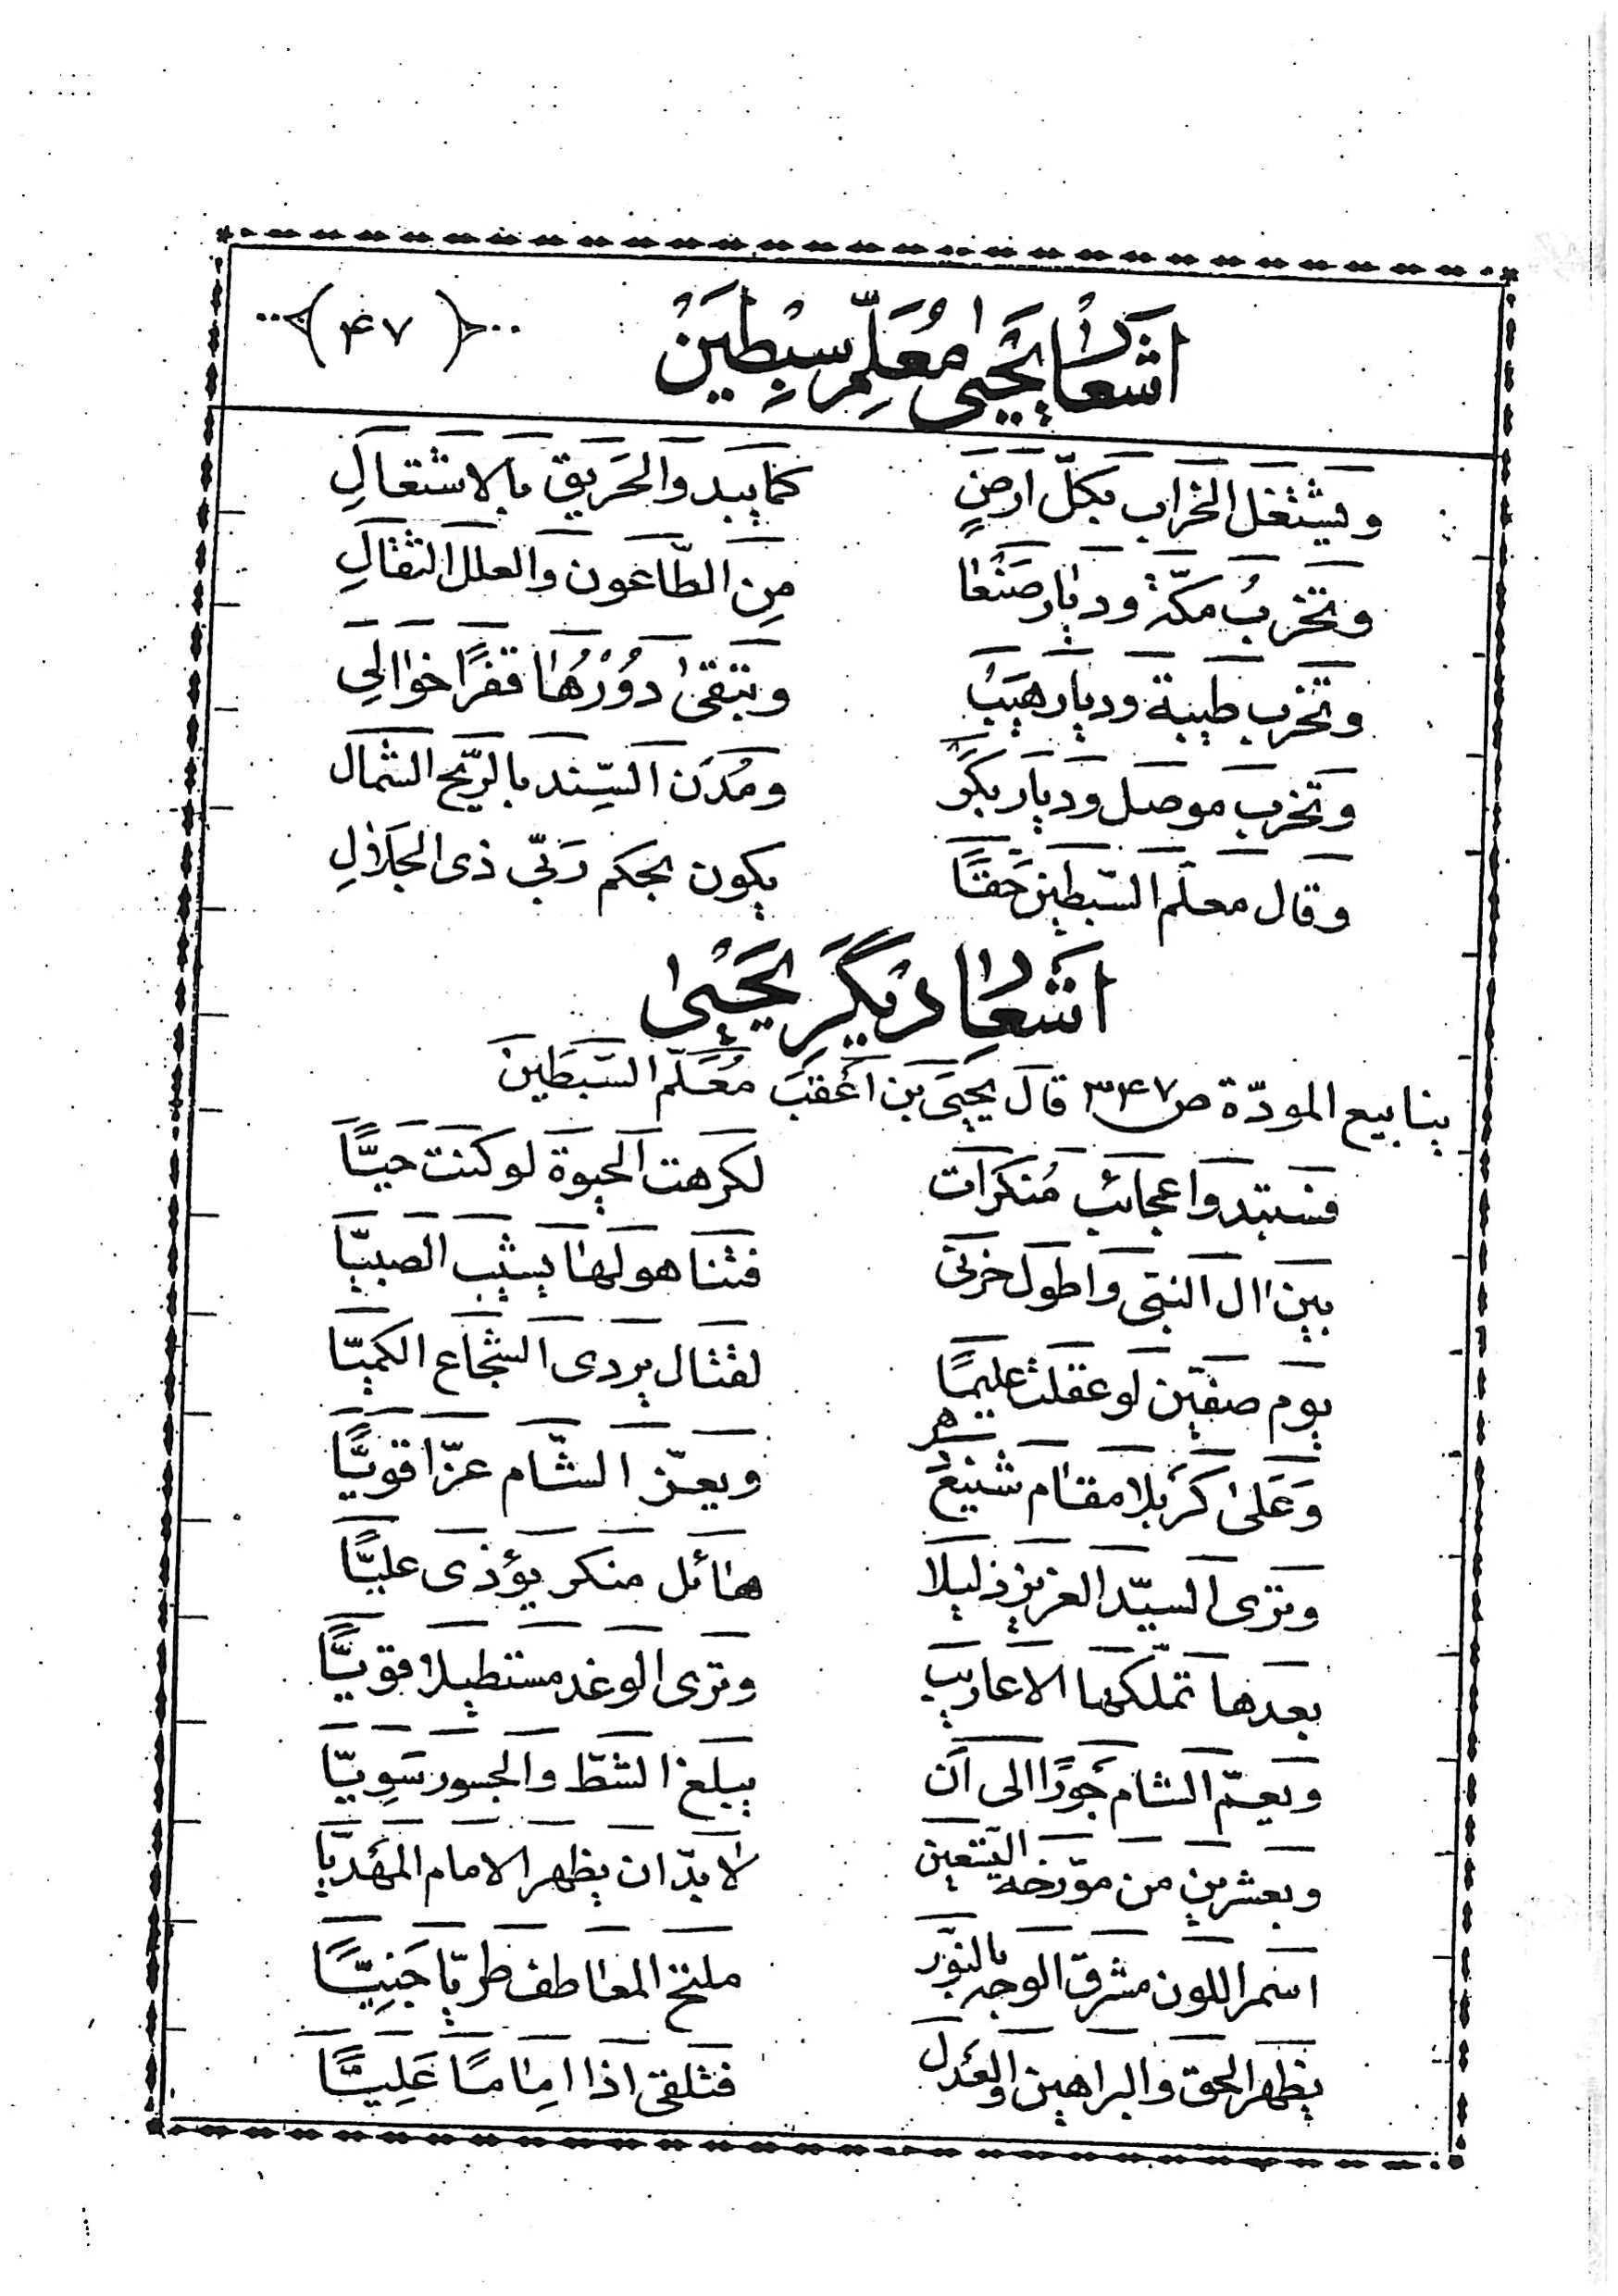 اشعار یحیی معلم سبطین (۴۷)
ویشتغل الخراب بکلّ ارضٍ کما یبدو الحریق بالاشتعالِ
وتخرب مکّة ودیار صنعا مِن الطّاعون والعلل الثقالِ
وتخرب طیبة ودیار هیب وتبقی دُوْرُها قفرًا خوالی
وتخرب موصل ودیار بکر ومُدُن السِّند بالرّیح الشمال
وقال معلّم السّبطین حقًّا یکون بحکم ربّی ذی الجلالِ
اشعار دیگر یحیی
ینابیع المودّة ص ۳۴۷ قال یحیی بن اعقب معلّم السّبطین
فستبدوا عجائب مُنکرات لکرهت الحیوة لو کنت حیًّا
بین ال النبی واطول خزنی فتنا هولها یشیب الصبیّا
یوم صفّین لو عقلت علیمًا لقتال یردی الشجاع الکمیّا
وَعَلی کربلا مقام شنیع ویعزّ الشام عزّا قویًّا
وتری السیّد العزیز ذلیلا هائل منکر یؤذی علیًّا
بعدها تملّکها الاعاریب وتری الوغد مستطیلا قویًّا
ویعمّ الشام جورًا الی ان یبلغ الشطّ والجسور سَوِیّا
وبعشرین من مورّخه التسعین لا بدّ ان یظهر الامام المهدیّا
اسمر اللون مشرق الوجه بالنور ملتح المعاطف طریّا جَنِیًّا
یظهر الحق والبراهین والعدل فتلقی اذا امامًا عَلِیًّا